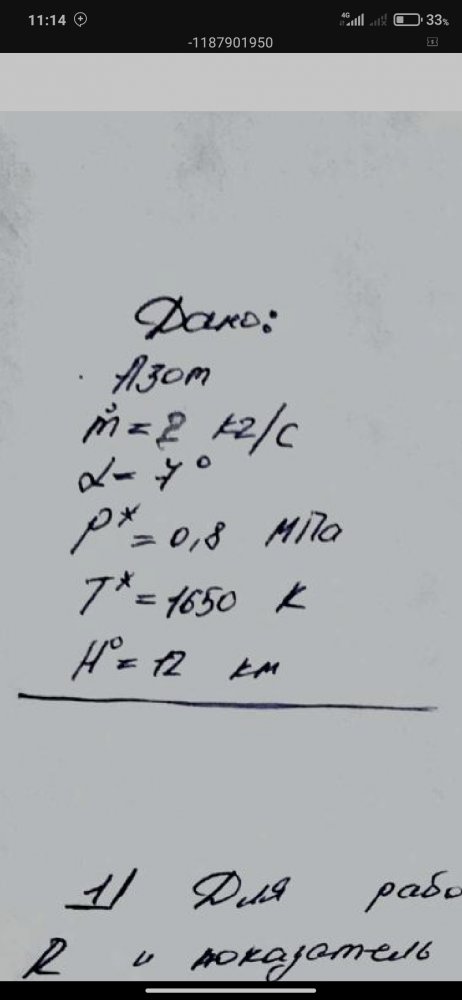 11:14 4G 33%
-1187901950
Дано:
Азот
ṁ = 2 кг/с
α = 7°
P* = 0,8 МПа
T* = 1650 К
H° = 12 км
1) Для рабо
R и показатель